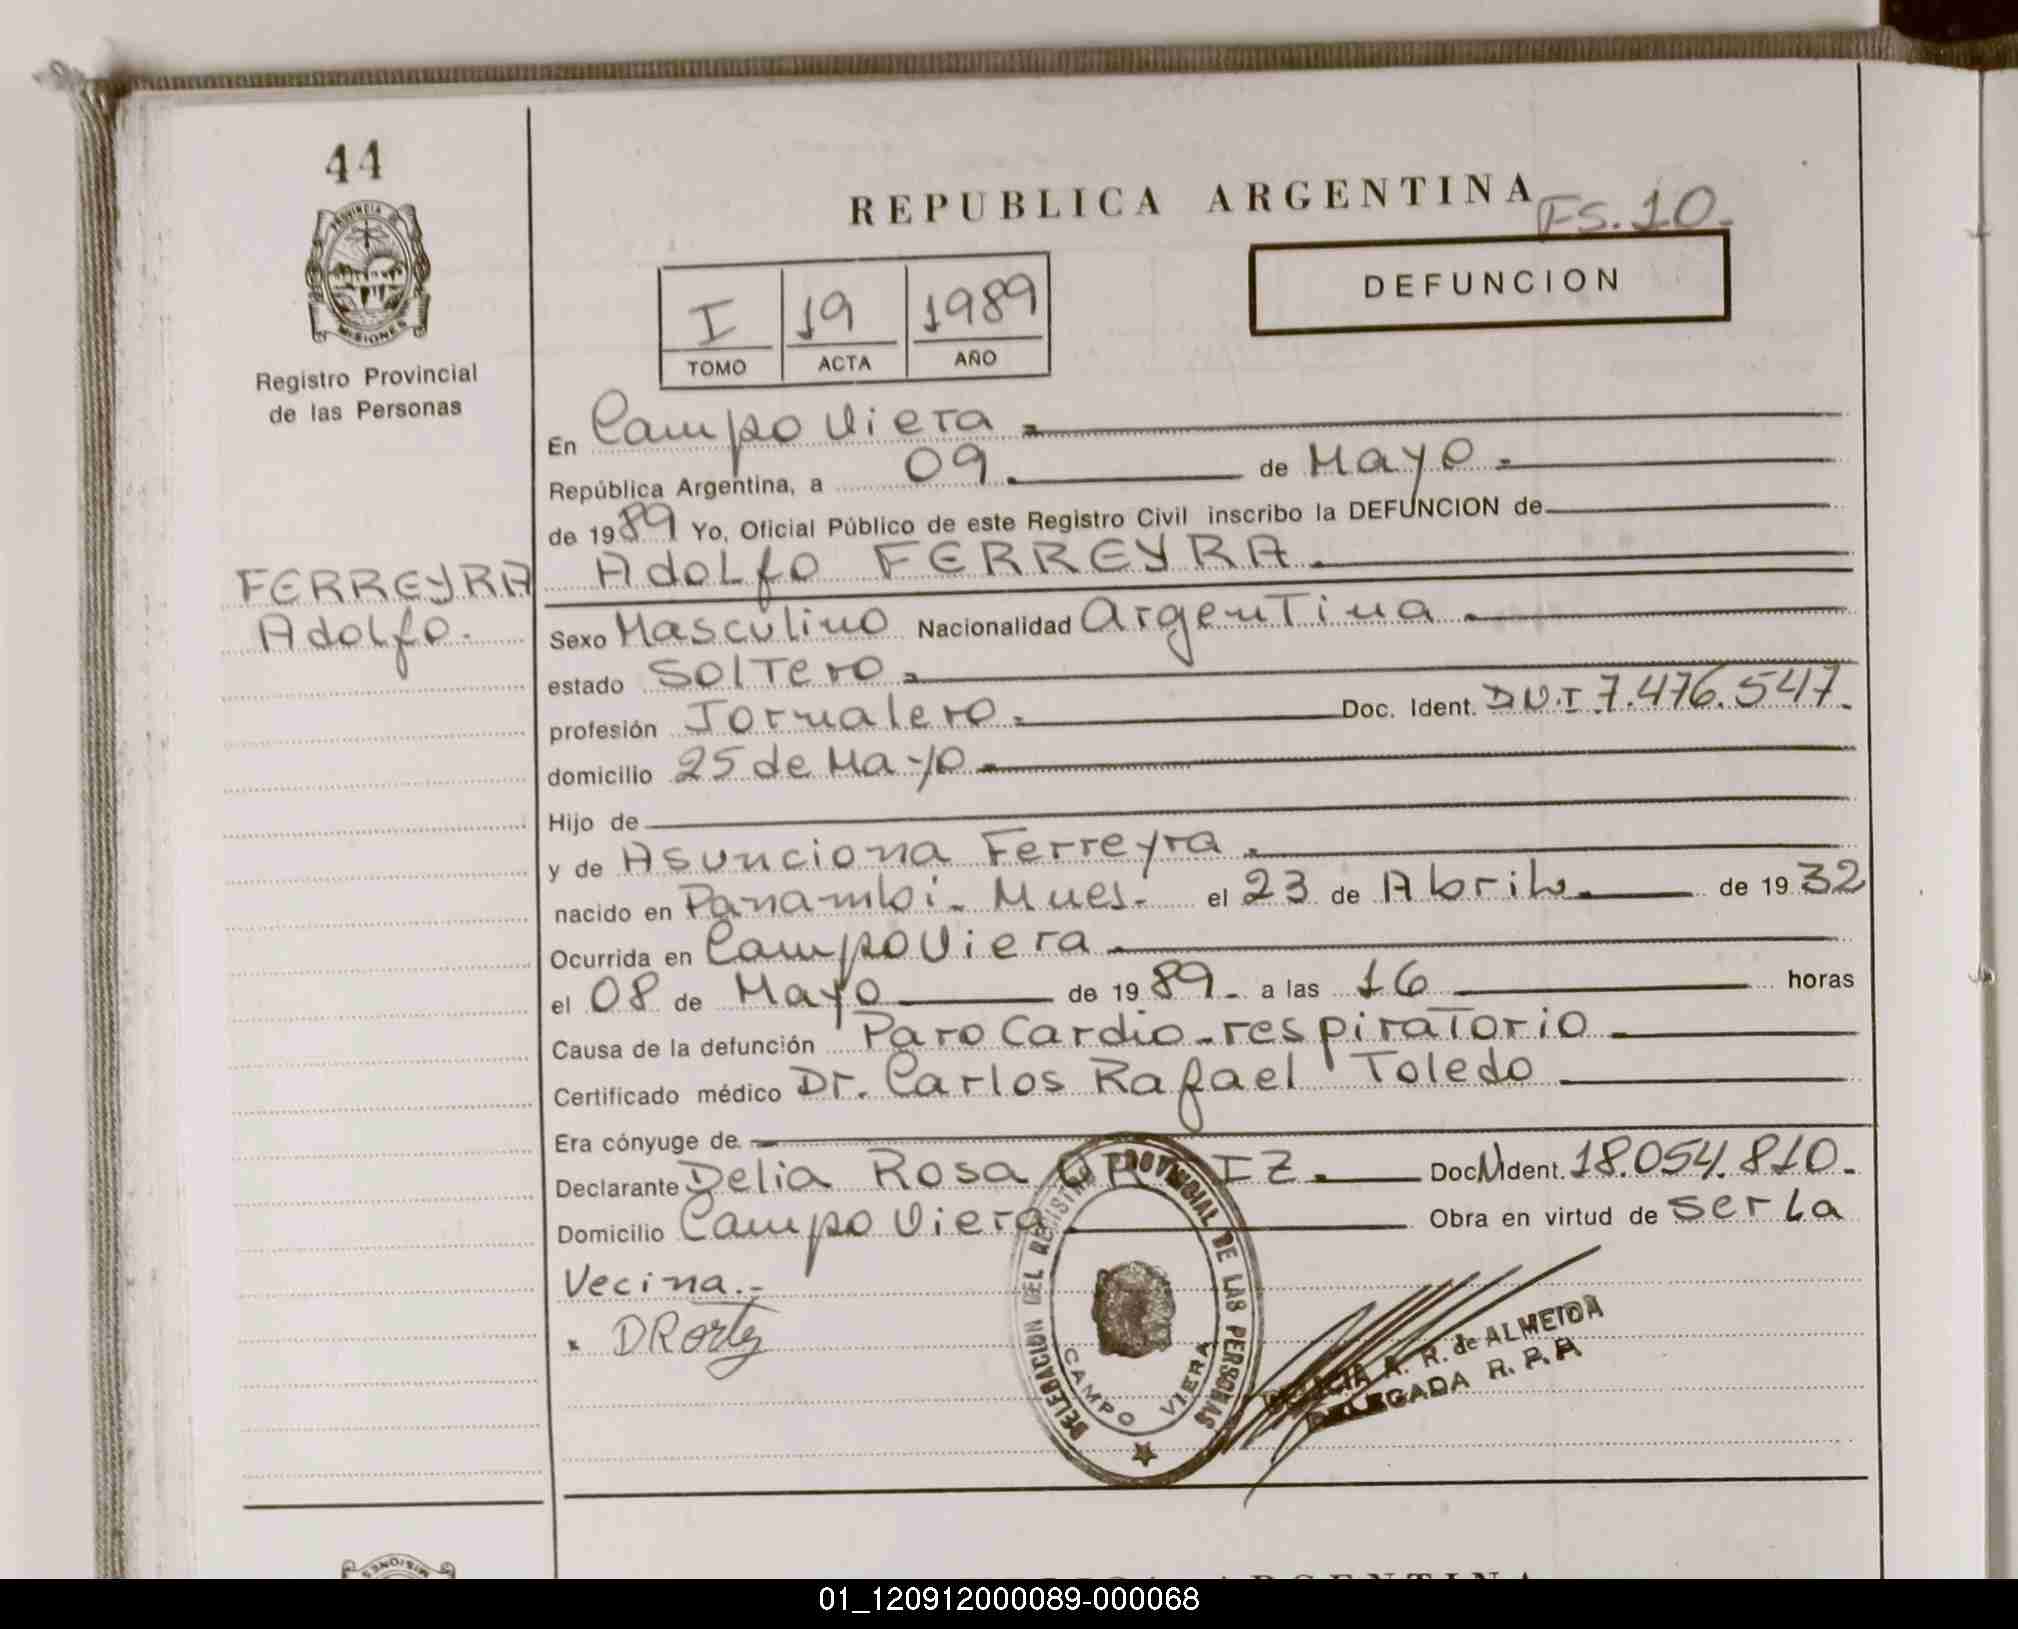 44
PROVINCIA DE
MISIONES
Registro Provincial
de las Personas
REPUBLICA ARGENTINA
FS. 10.
I 19 1989
TOMO ACTA AÑO
DEFUNCION
En Campo Viera
República Argentina, a 09 de Mayo
de 1989 Yo, Oficial Público de este Registro Civil inscribo la DEFUNCION de
Adolfo FERREYRA
FERREYRA
Adolfo.
Sexo Masculino Nacionalidad Argentina
estado Soltero
profesión Jornalero Doc. Ident. D.N.I 7.476.547.
domicilio 25 de Mayo
Hijo de
y de Asunciona Ferreyra
nacido en Panambi - Mnes. el 23 de Abril de 1932
Ocurrida en Campo Viera
el 08 de Mayo de 1989 a las 16 horas
Causa de la defunción Paro Cardio-respiratorio
Certificado médico Dr. Carlos Rafael Toledo
Era cónyuge de
Declarante Delia Rosa ORTIZ. Doc. N Ident. 18.054.810.
Domicilio Campo Viera Obra en virtud de ser la
Vecina.-
DROrtiz
DELEGACION DEL REGISTRO PROVINCIAL DE LAS PERSONAS
CAMPO VIERA
A. R. de ALMEIDA
DELEGADA R. P. P.
MISIONES
REPUBLICA ARGENTINA
01_120912000089-000068